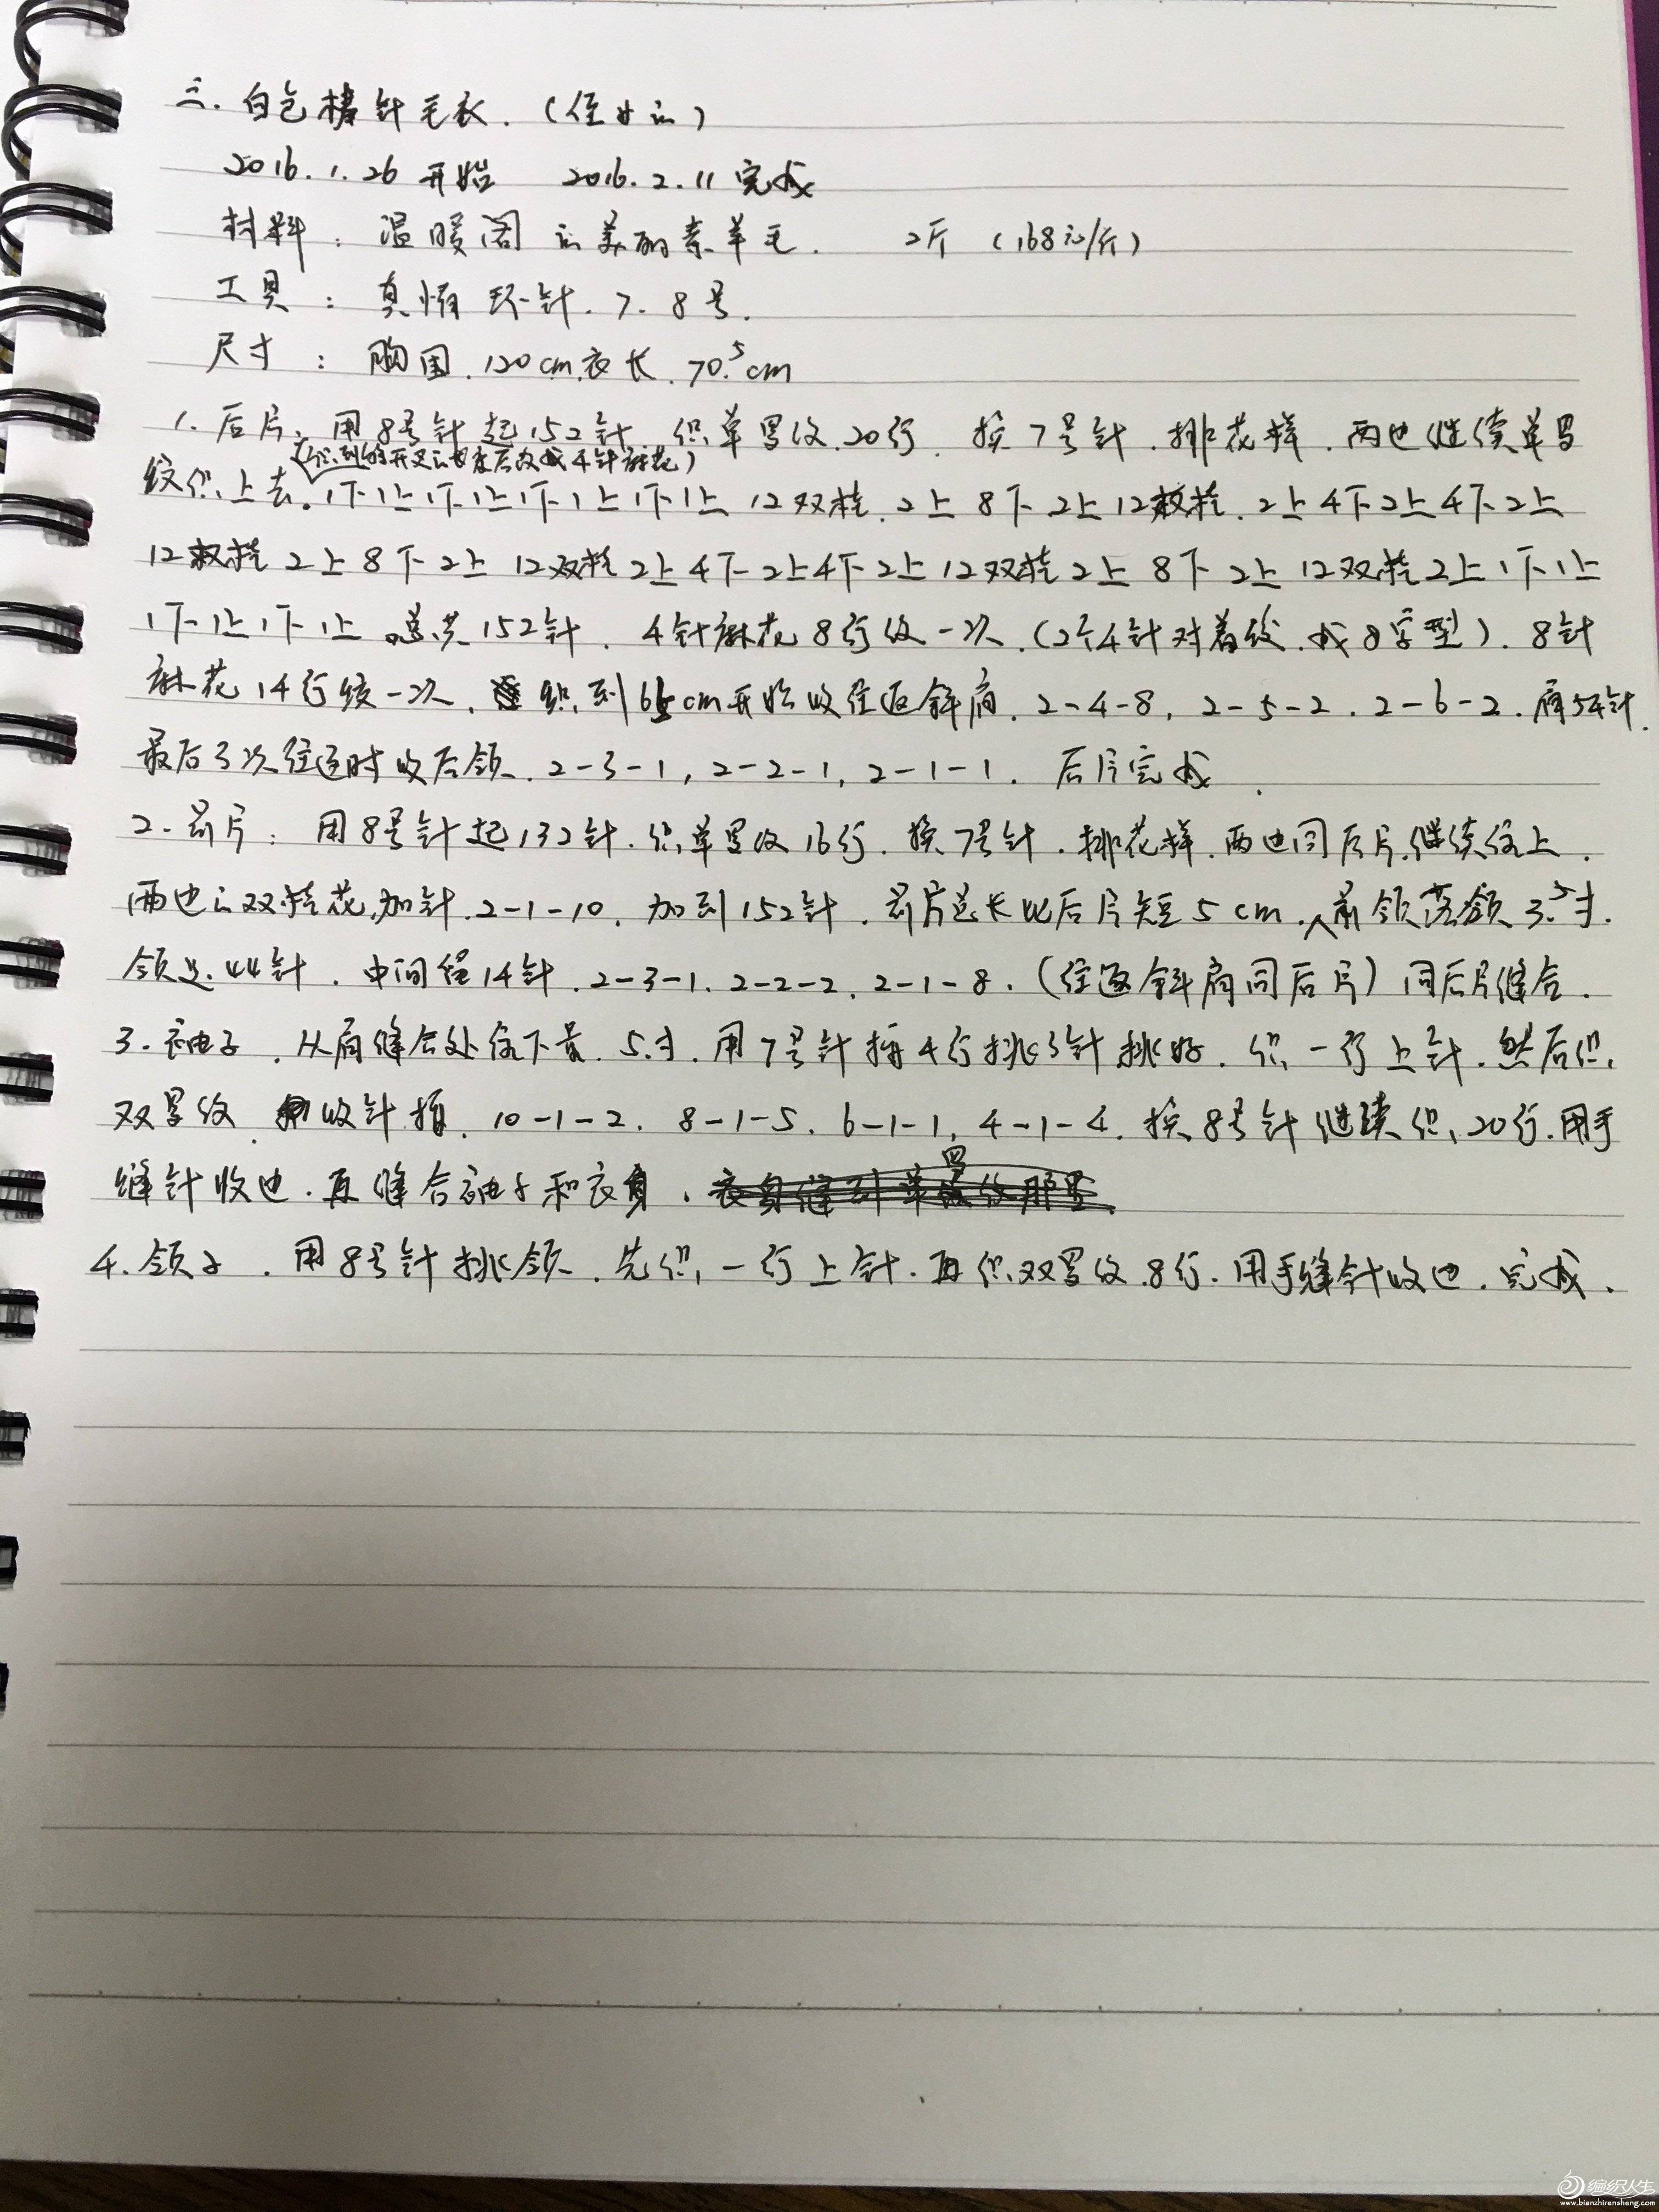 三.白色棒针毛衣.(侄女的)
2016.1.26开始 2016.2.11完成
材料:温暖阁的美丽素羊毛. 2斤(168元/斤)
工具:真情环针.7.8号.
尺寸:胸围.120cm.衣长.70.5cm
1.后片,用8号针起152针.织单罗纹.20行.换7号针.排花样.两边继续单罗
(织到的开叉的长度后改成4针麻花)
纹织上去。1下1上1下1上1下1上1下1上 12双桂.2上8下2上12双桂.2上4下2上4下2上
12双桂2上8下2上12双桂2上4下2上4下2上12双桂2上8下2上12双桂2上1下1上
1下1上1下1上。总共152针.4针麻花8行绞一次.(2个4针对着绞.成8字型).8针
麻花14行绞一次,织到65cm开始收往返斜肩.2-4-8,2-5-2.2-6-2.肩54针.
最后3次往返时收后领.2-3-1,2-2-1,2-1-1.后片完成.
2.前片:用8号针起132针.织单罗纹16行.换7号针.排花样.两边同后片.继续往上.
两边的双桂花,加针.2-1-10,加到152针.前片总长比后片短5cm.前领落领3.5寸.
领边.44针.中间留14针.2-3-1.2-2-2.2-1-8.(往返斜肩同后片)同后片缝合.
3.袖子.从肩缝合处往下量.5寸.用7号针按4行挑3针挑好.织一行上针.然后织
双罗纹.收针按.10-1-2.8-1-5.6-1-1,4-1-4.换8号针继续织20行.用手
缝针收边.再缝合袖子和衣身.
4.领子.用8号针挑领.先织一行上针.再织双罗纹.8行.用手缝针收边.完成.
编织人生
www.bianzhirensheng.com